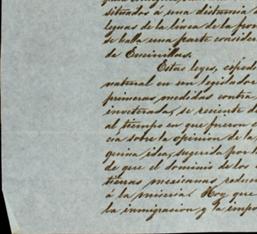 situados á una distancia
leguas de la linea de la fron
se halla una parte consider
de Emiciclas.
Estas leyes, espedi
natural en un legislador
primeras medidas contra
inveteradas, se reciente d
al tiempo en que fueron
cia sobre la opinion de la
quina idea, sugerida por l
de que el dominio de los
tierras mexicanas reduci
á la miseria. Hoy que
la inmigracion y la impo